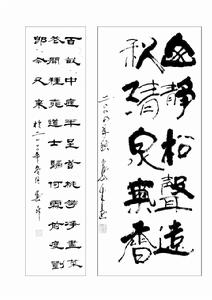 靜松聲遠
秋清泉氣香
二〇〇四年秋
百畝中庭半是苔桃花淨盡菜
花開種桃道士歸何處前度劉
郎今又來